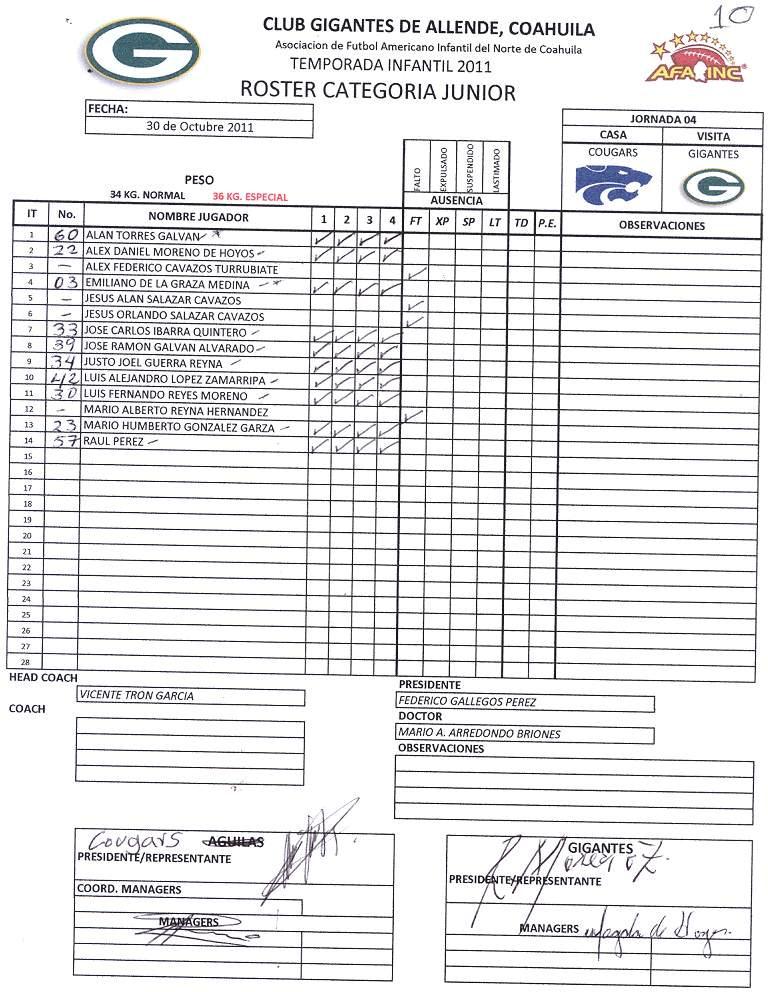 10
CLUB GIGANTES DE ALLENDE, COAHUILA
Asociacion de Futbol Americano Infantil del Norte de Coahuila
TEMPORADA INFANTIL 2011
ROSTER CATEGORIA JUNIOR
G
AFA INC
FECHA:
30 de Octubre 2011
JORNADA 04
CASA VISITA
COUGARS GIGANTES
G
FALTO EXPULSADO SUSPENDIDO LASTIMADO
AUSENCIA
PESO
34 KG. NORMAL 36 KG. ESPECIAL
IT No. NOMBRE JUGADOR 1 2 3 4 FT XP SP LT TD P.E. OBSERVACIONES
1 60 ALAN TORRES GALVAN ✓ ✓ ✓ ✓
2 22 ALEX DANIEL MORENO DE HOYOS ✓ ✓ ✓ ✓
3 — ALEX FEDERICO CAVAZOS TURRUBIATE ✓
4 03 EMILIANO DE LA GRAZA MEDINA ✓ ✓ ✓ ✓
5 — JESUS ALAN SALAZAR CAVAZOS ✓
6 — JESUS ORLANDO SALAZAR CAVAZOS ✓
7 33 JOSE CARLOS IBARRA QUINTERO ✓ ✓ ✓ ✓
8 39 JOSE RAMON GALVAN ALVARADO ✓ ✓ ✓ ✓
9 34 JUSTO JOEL GUERRA REYNA ✓ ✓ ✓ ✓
10 42 LUIS ALEJANDRO LOPEZ ZAMARRIPA ✓ ✓ ✓ ✓
11 30 LUIS FERNANDO REYES MORENO ✓ ✓ ✓ ✓
12 - MARIO ALBERTO REYNA HERNANDEZ ✓
13 23 MARIO HUMBERTO GONZALEZ GARZA ✓ ✓ ✓ ✓
14 57 RAUL PEREZ ✓ ✓ ✓ ✓
15
16
17
18
19
20
21
22
23
24
25
26
27
28
HEAD COACH
VICENTE TRON GARCIA
COACH
PRESIDENTE
FEDERICO GALLEGOS PEREZ
DOCTOR
MARIO A. ARREDONDO BRIONES
OBSERVACIONES
Cougars AGUILAS
PRESIDENTE/REPRESENTANTE
COORD. MANAGERS
MANAGERS
GIGANTES
PRESIDENTE/REPRESENTANTE
MANAGERS